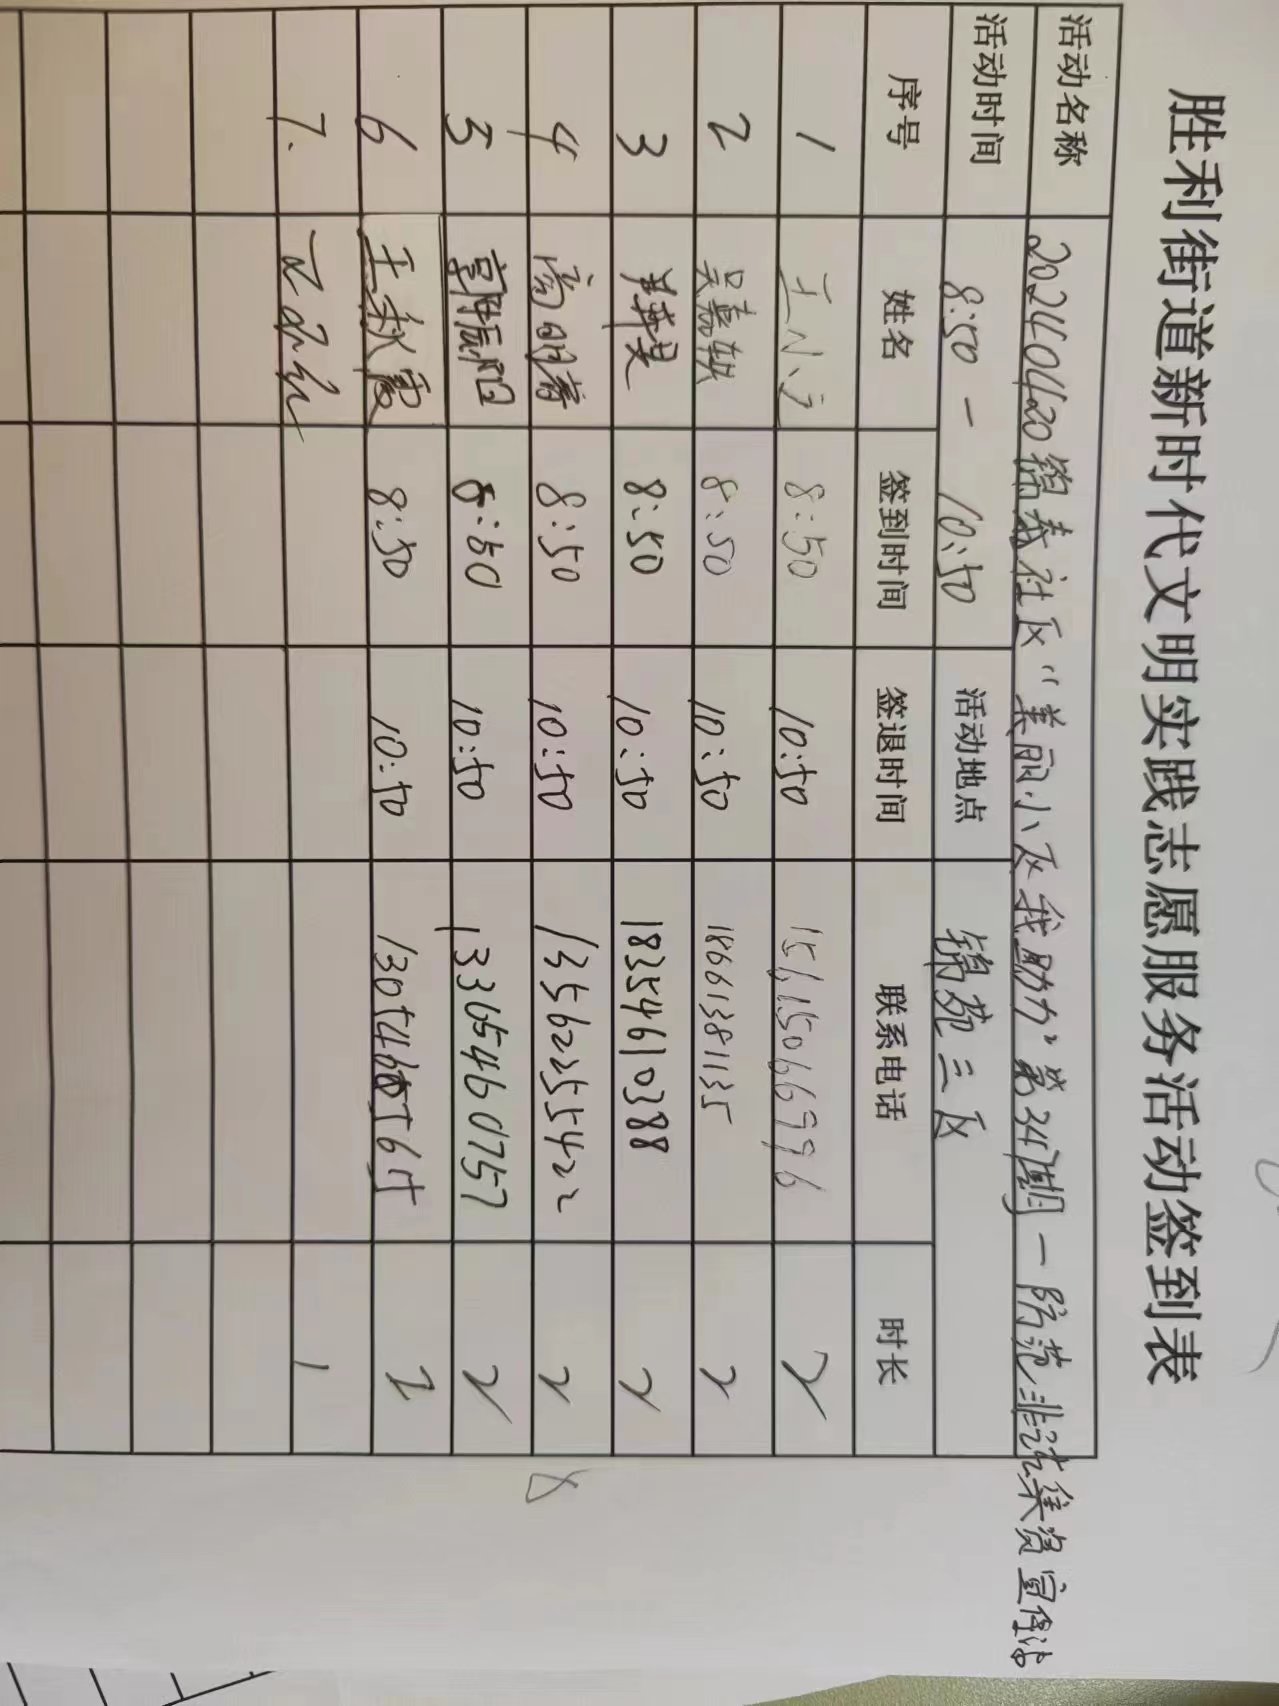 胜利街道新时代文明实践志愿服务活动签到表
活动名称 20240420锦苑社区“美丽小区我助力”第34期一防范非法集资宣传活
活动时间 8:50 — 10:50 活动地点 锦苑三区
序号 姓名 签到时间 签退时间 联系电话 时长
1 8:50 10:50 15615066996 2
2 吴嘉轶 8:50 10:50 18661381135 2
3 8:50 10:50 18354610388 2
4 8:50 10:50 13562255422 2
5 郭振阳 8:50 10:50 13365460757 2
6 王秋霞 8:50 10:50 2
7. 1
8